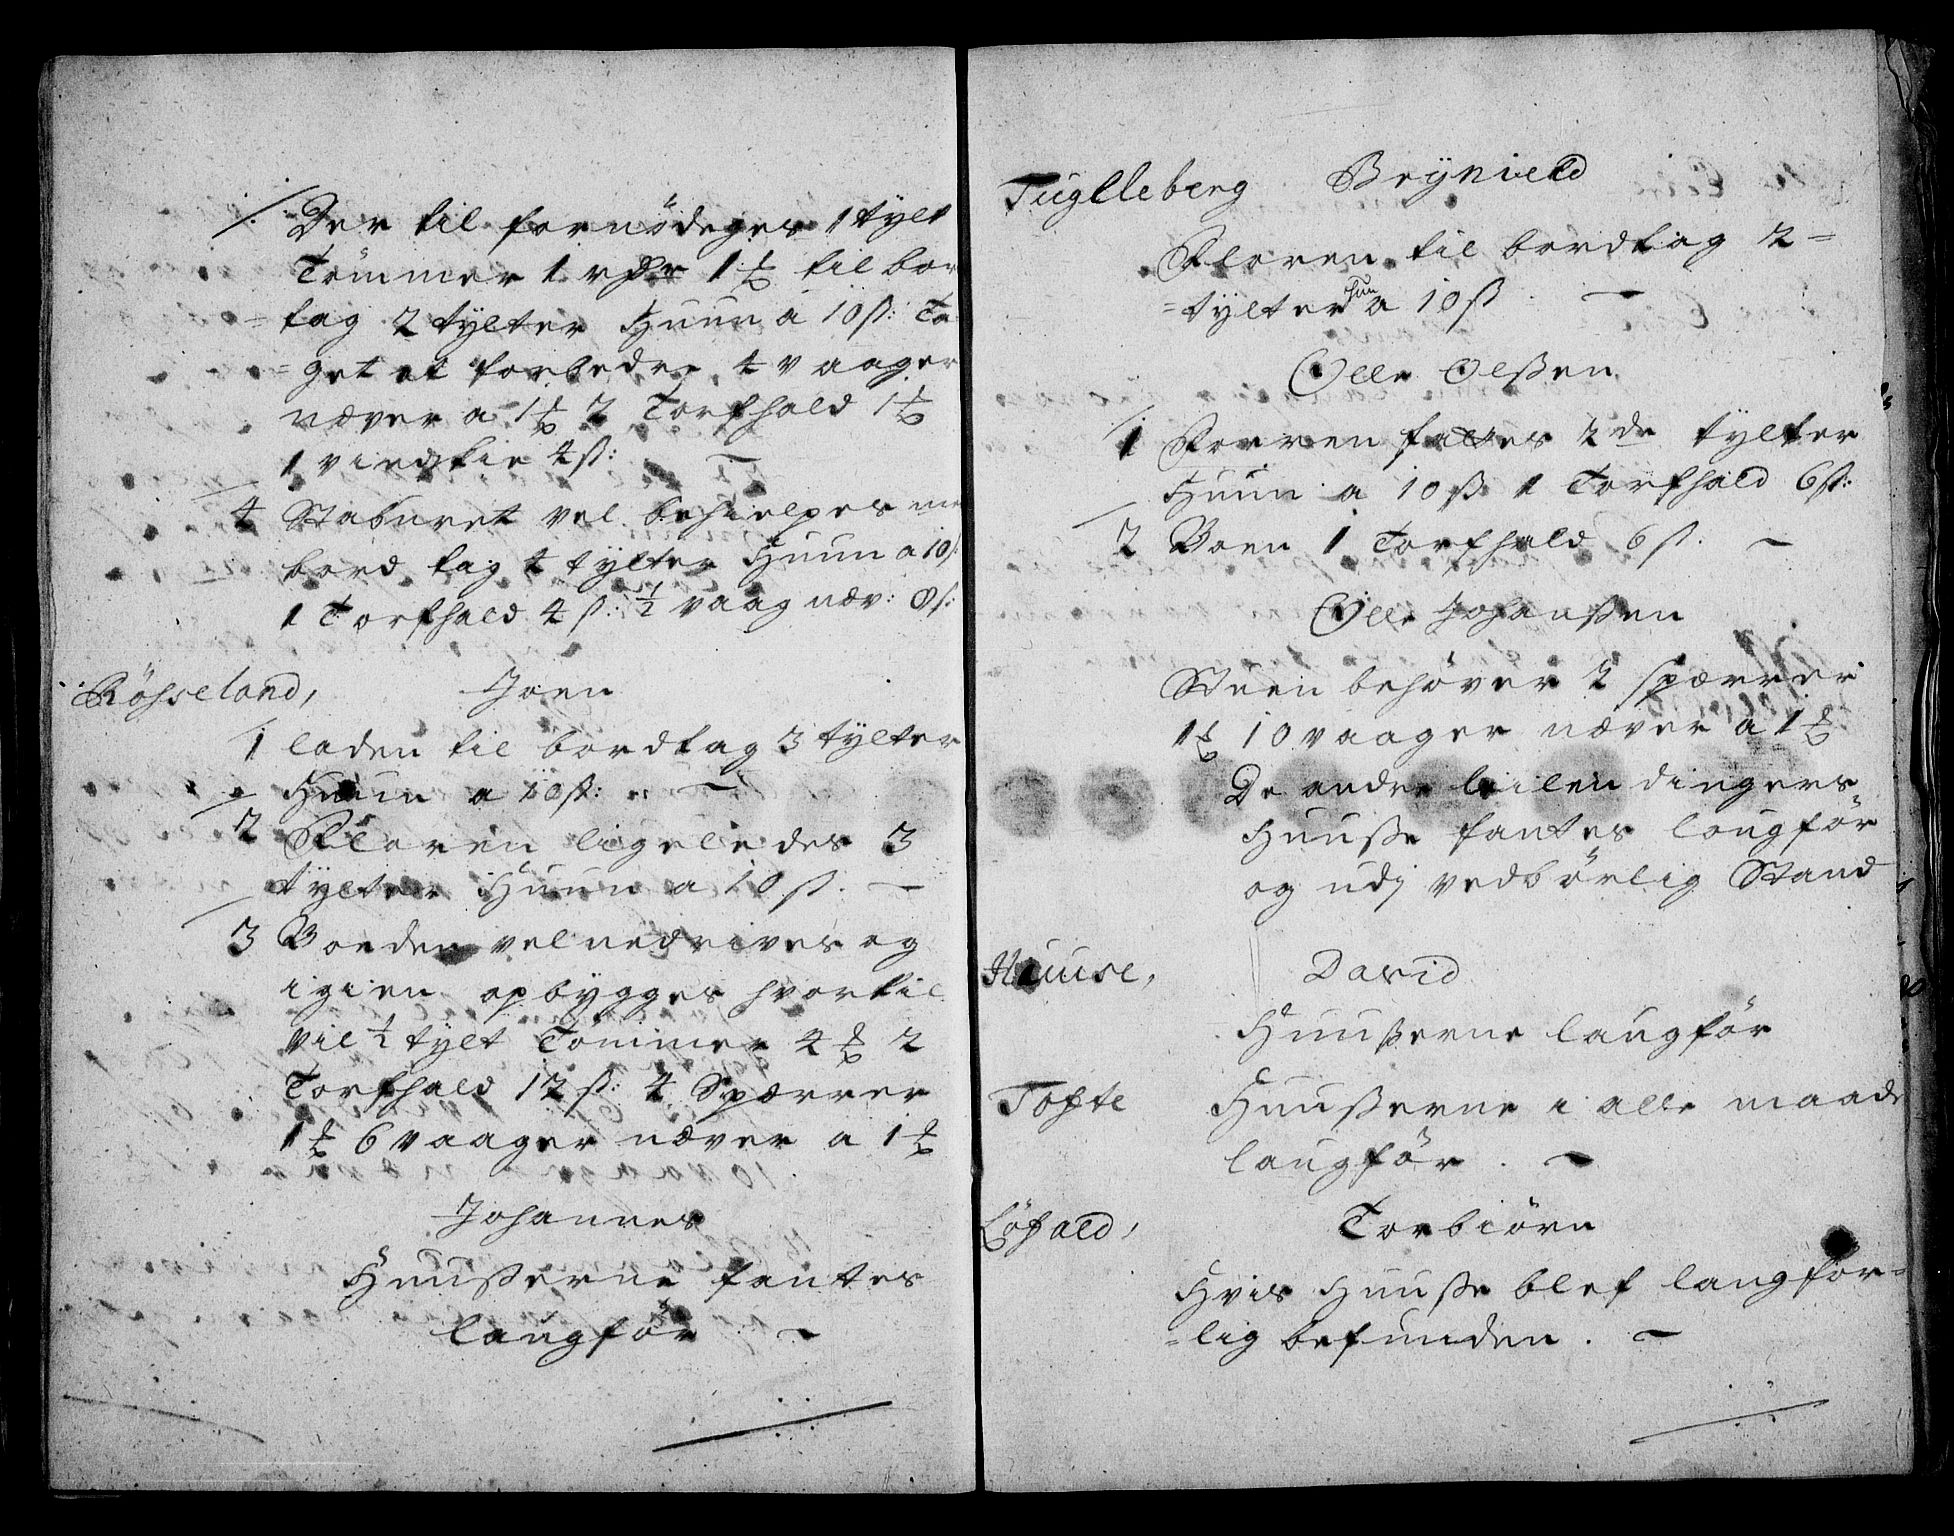 Der til fornödeges 1 tylt
Tömmer 1 rdr 1 ℔ til bor
tag 2 tylter Huun a 10 ß: Ta
get at forbedre 4 vaager
næver a 1 ℔ 2 Torfhald 1 ℔
1 vindskie 4 ß:
4 Staburet vel behielpes me
bord tag 4 tylter Huun a 10 ß:
1 Torfhald 4 ß: ½ vaag næv: 8 ß:
Rösseland, Joen
1 laden til bordtag 3 tylter
Huun a 10 ß:
2 Floren ligeledes 3
tylter Huun a 10 ß.
3 Boeden vel nedrives og
igien opbygges hvortil
vil ½ tylt Tömmer 4 ℔ 2
Torfhald 12 ß: 4 Spærrer
1 ℔ 6 vaager næver a 1 ℔
Johannes
Huusserne fantes
laugför
Fuglleberg Brynield
Floren til bordtag 2=
=tylter huun a 10 ß
Olle Olssen
1 Forren fattes 2de tylter
Huun a 10 ß 1 Torfhald 6 ß:
2 Boen 1 Torfhald 6 ß.
Olle Johanssen
Stuen behöver 4 spærrer
1 ℔ 10 vaager næver a 1 ℔
De andre leilendingers
Huusse fantes laugför
og udj vedbörlig Stand
Huuse, David
Huusserne laugför
Tofte Huusserne i alle maade
laugför.
Löfald, Torbiörn
Hvis Huusse blef laugför=
=lig befunden.